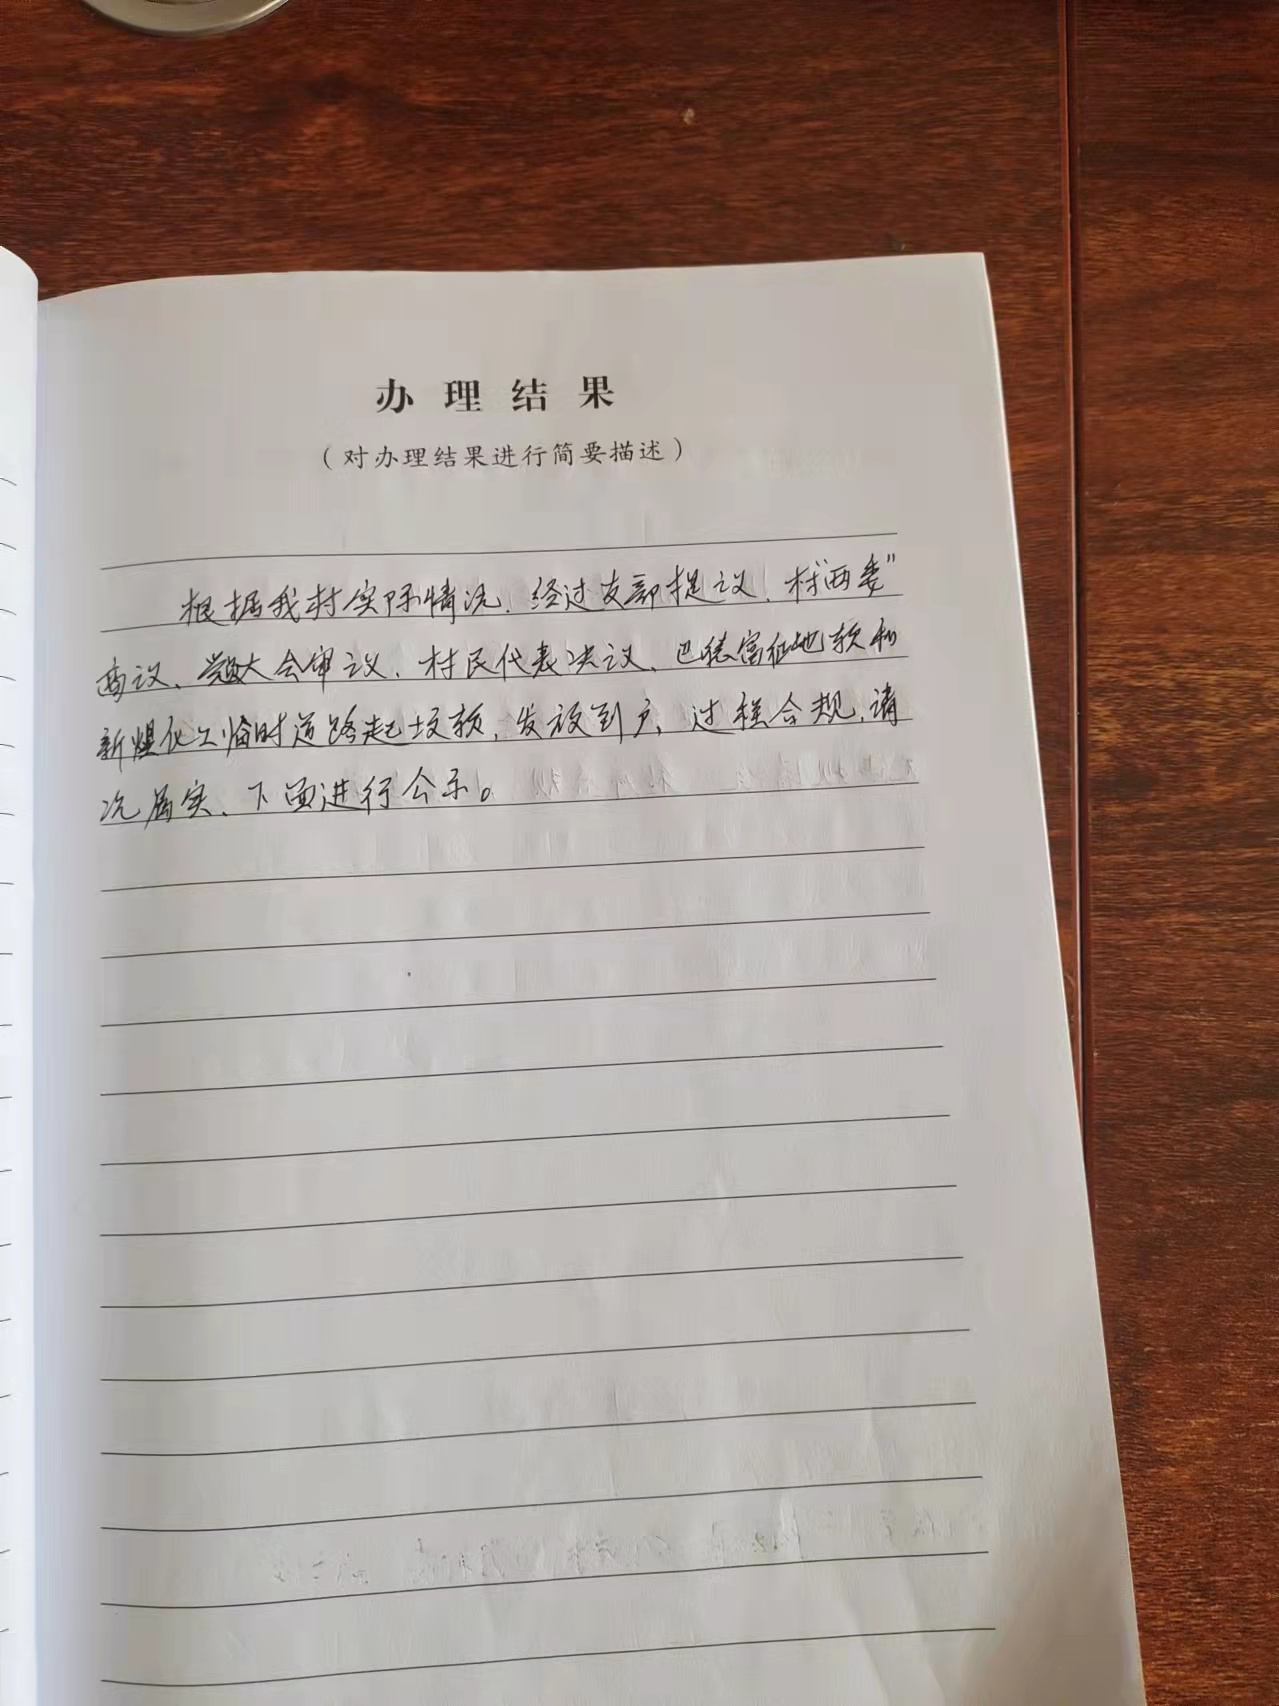 办理结果
（对办理结果进行简要描述）
根据我村实际情况，经过支部提议，村“两委”
商议、党员大会审议、村民代表决议、巴德富征地款和
新煤化工临时道路起坟款，发放到户，过程合规，请
况属实、下面进行公示。